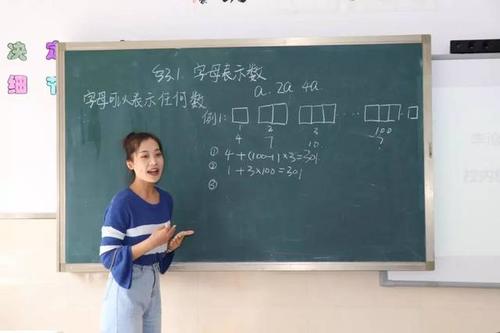 决定
细节
§3.1 字母表示数
字母可以表示任何数
a 2a 4a
例1:
1 2 3 ... 100
4 7 10 ?
① 4+(100-1)×3=301
② 1+3×100=301
③